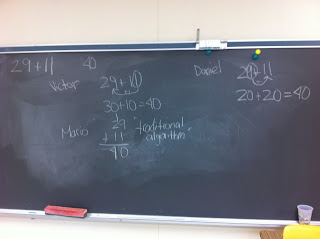 29+11 40
Victor
29+10
30+10=40
Mario
1
29
+11
40
"traditional
algorithm"
Daniel
29+11
20+20=40